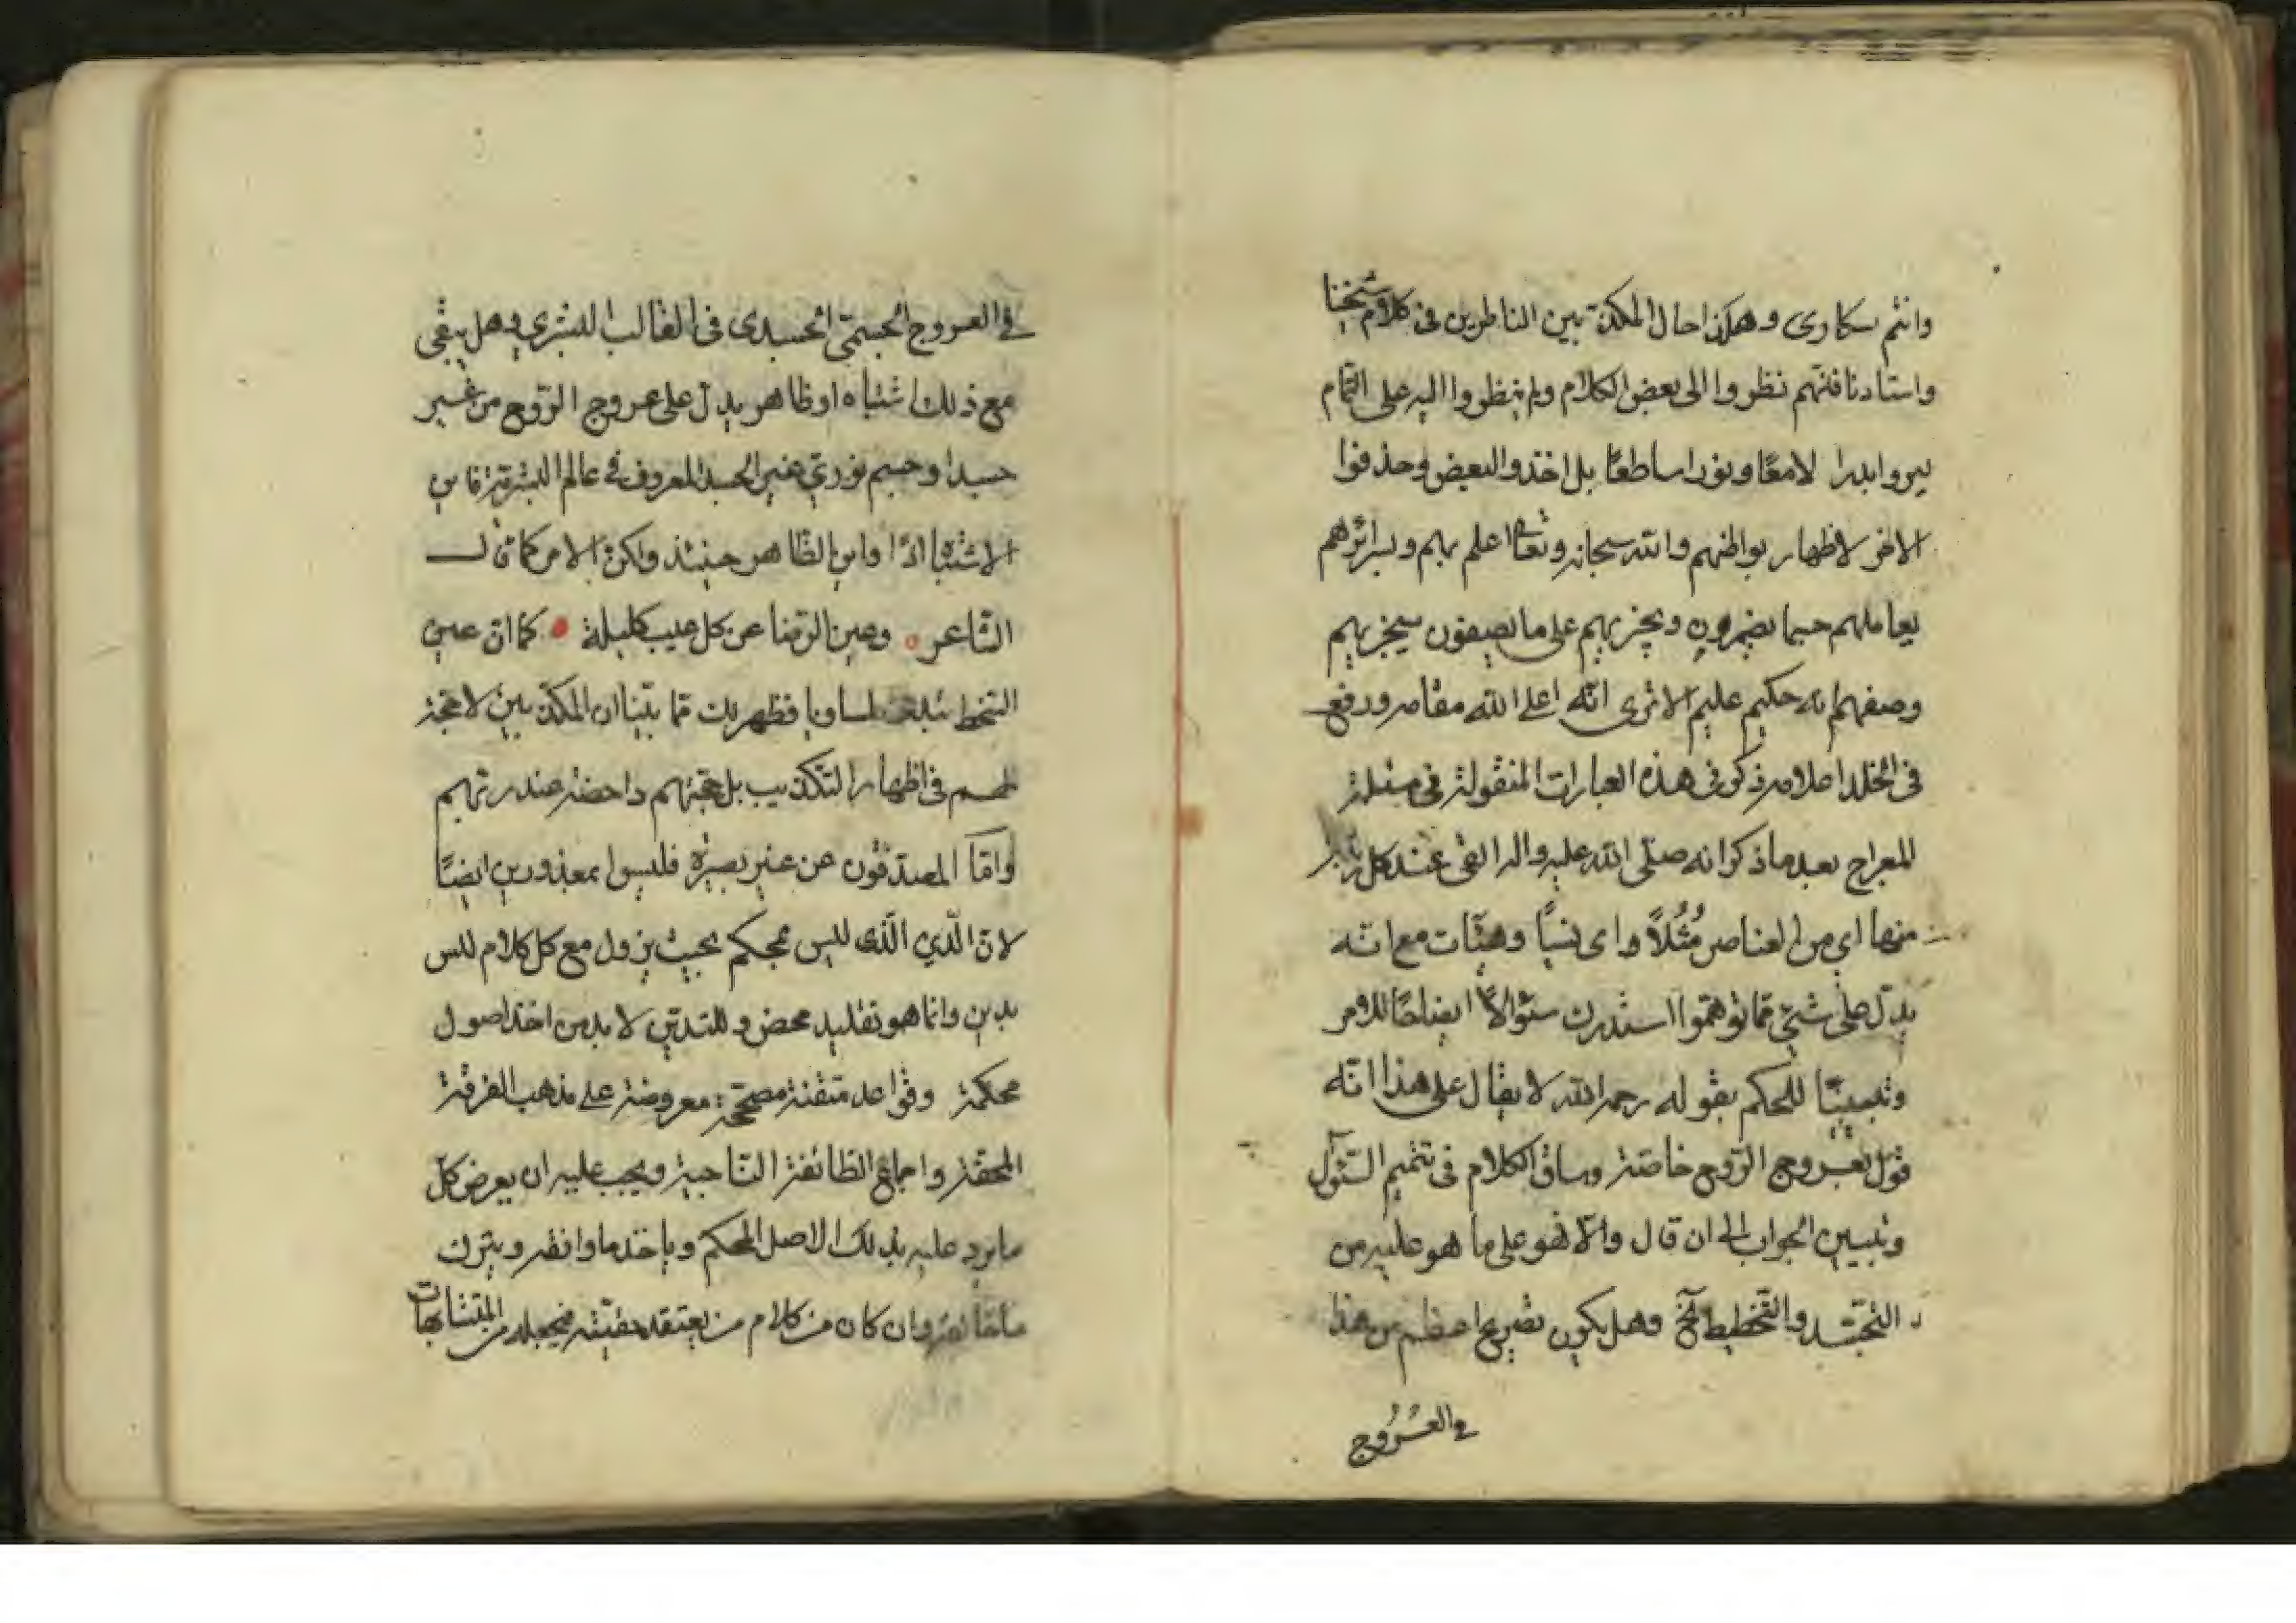 وانتم سكارى وهكذا حال المكذبين الناظرين فى كلام شيخنا
واستادنا فانهم نظروا الى بعض الكلام ولم ينظروا اليه على التمام
ليروا بدرا لامعًا ونورا ساطعًا بل اخذوا البعض وحذفوا
الاخر لاظهار بواطنهم والله سبحانه وتعالى اعلم بهم وبسرائرهم
يعاملهم حسبما يضمرون ويجزيهم على ما يصفون سيجزيهم
وصفهم انه حكيم عليم الا ترى انّه اعلى الله مقامه ورفع
فى الخلد اعلامه ذكر فى هذه العبارات المنقولة فى مسئلة
المعراج بعد ما ذكر انه صلّى الله عليه واله القى عند كل رتبة
منها اي من العناصر مُثُلاً واى نسبًا وهيئات مع انّه
يدلّ على شيئ مما توهّموا استدرك سئوالاً ايضاحًا للامر
وتبيينًا للحكم بقوله رحمه الله لا يقال على هذا انّه
قول بعروج الرّوح خاصّة وساق الكلام فى تتميم السّئوآل
وتبيين الجواب الى ان قال والّا فهو على ما هو عليه من
التجسّد والتّخطيط آلخ وهل يكون تصريح اعظم من هذا
فى العُرُوج
فى العروج الجسمّي الجسدى فى القالب البشري وهل يبقى
مع ذلك اشتباه او ظاهر يدلّ على عروج الرّوح من غير
جسد او جسم نوري غير الجسد المعروف فى عالم البشريّة فاين
الاشتباه اذًا واين الظاهر حينئذ ولكن الامر كما قال
الشّاعر وعين الرّضا عن كل عيب كليلة كما ان عين
السّخط تبدى المساويا فظهر لك ممّا بيّنا ان المكذّبين لا حجّة
لهم فى اظهار التكذيب بل حجّتهم داحضة عند ربّهم
وامّا المصدّقون عن غير بصيرة فليسوا بمعذورين ايضًا
لانّ الّدي الّذى ليس بمحكم بحيث يزول مع كل كلام ليس
بدين وانما هو تقليد محض وللتديّن لا بد من اخذ اصول
محكمة وقواعد متقنة مصحّحة معروضة على مذهب الفرقة
المحقّة واجماع الطّائفة النّاجية ويجب عليه ان يعرض كلّ
ما يرد عليه بذلك الاصل المحكم وياخذ ما وافقه ويترك
ما خالفه وان كان من كلام من يعتقد حقيّته فيجعله من المتشابهات